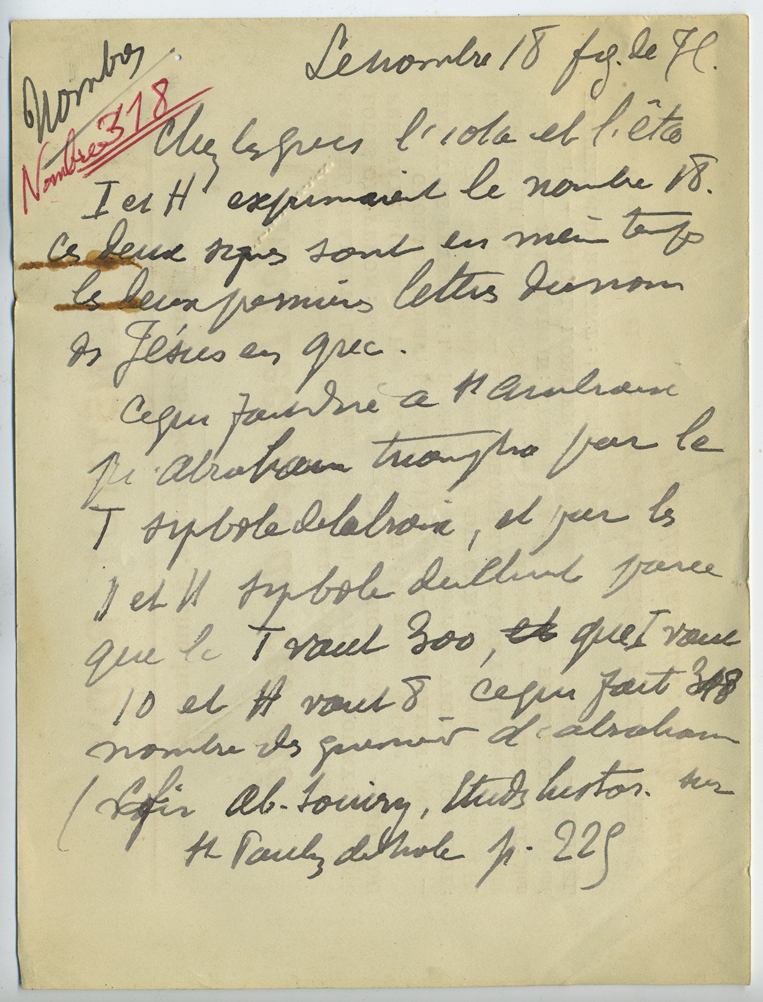 Nombres
Nombre 318
Le nombre 18 fig. de J.C.
Chez les grecs l'iota et l'êta
I et H exprimaient le nombre 18.
Ces deux signes sont en même temps
les deux premières lettres du nom
de Jésus en grec.
Ce qui fait dire à St Ambroise
Abraham triompha par le
T symbole de la croix, et par les
I et H symbole du Christ parce
que le T vaut 300, et que I vaut
10 et H vaut 8 ce qui fait 318
nombre des guerriers d'abraham
( Ab. , Etudes histor. sur
St Paul de p. 229